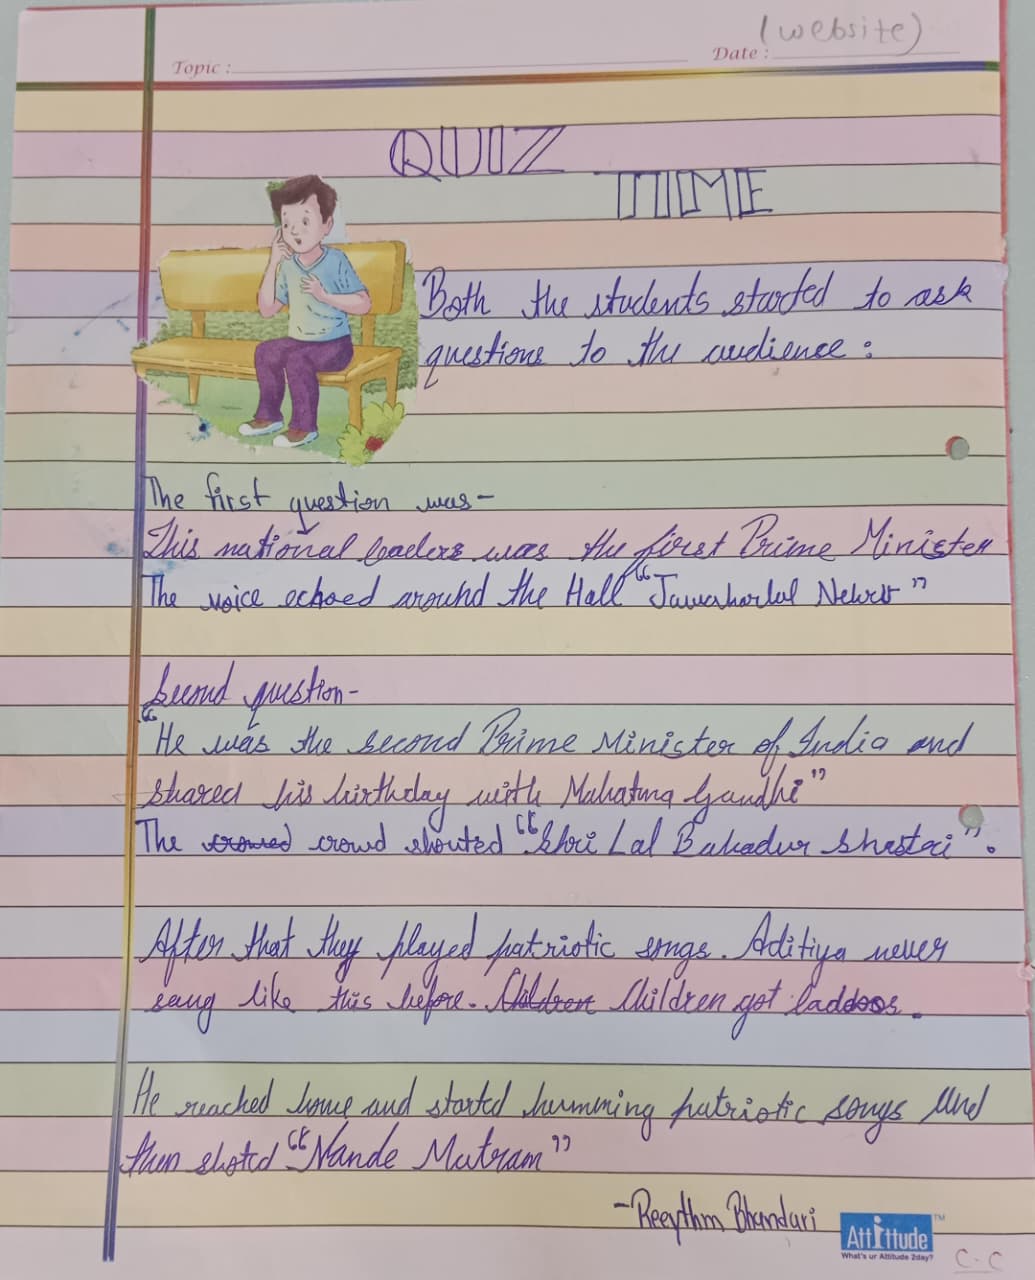 (website)
Topic :
Date :
QUIZ
TIME
Both the students started to ask
questions to the audience :
The first question was-
This national leaders was the first Prime Minister
The voice echoed around the Hall “Jawaharlal Nehru”
Second question-
“He was the second Prime Minister of India and
shared his birthday with Mahatma Gandhi”
The crowed crowd shouted “Shri Lal Bahadur Shastri”.
After that they played patriotic songs. Aditiya never
sang like this before. Children Children got laddoos.
He reached home and started humming patriotic songs and
then shoted “Vande Matram”
-Reeythm Bhandari
Attittude TM
What's ur Attitude 2day?
C.C